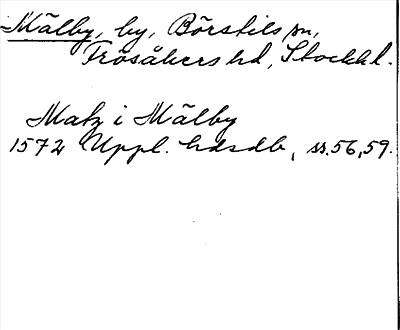 Mälby, by, Börstils sn,
Frösåkers hd, Stockhl.
Matz i Mälby
1572 Uppl. hdsdb, ss. 56, 59.